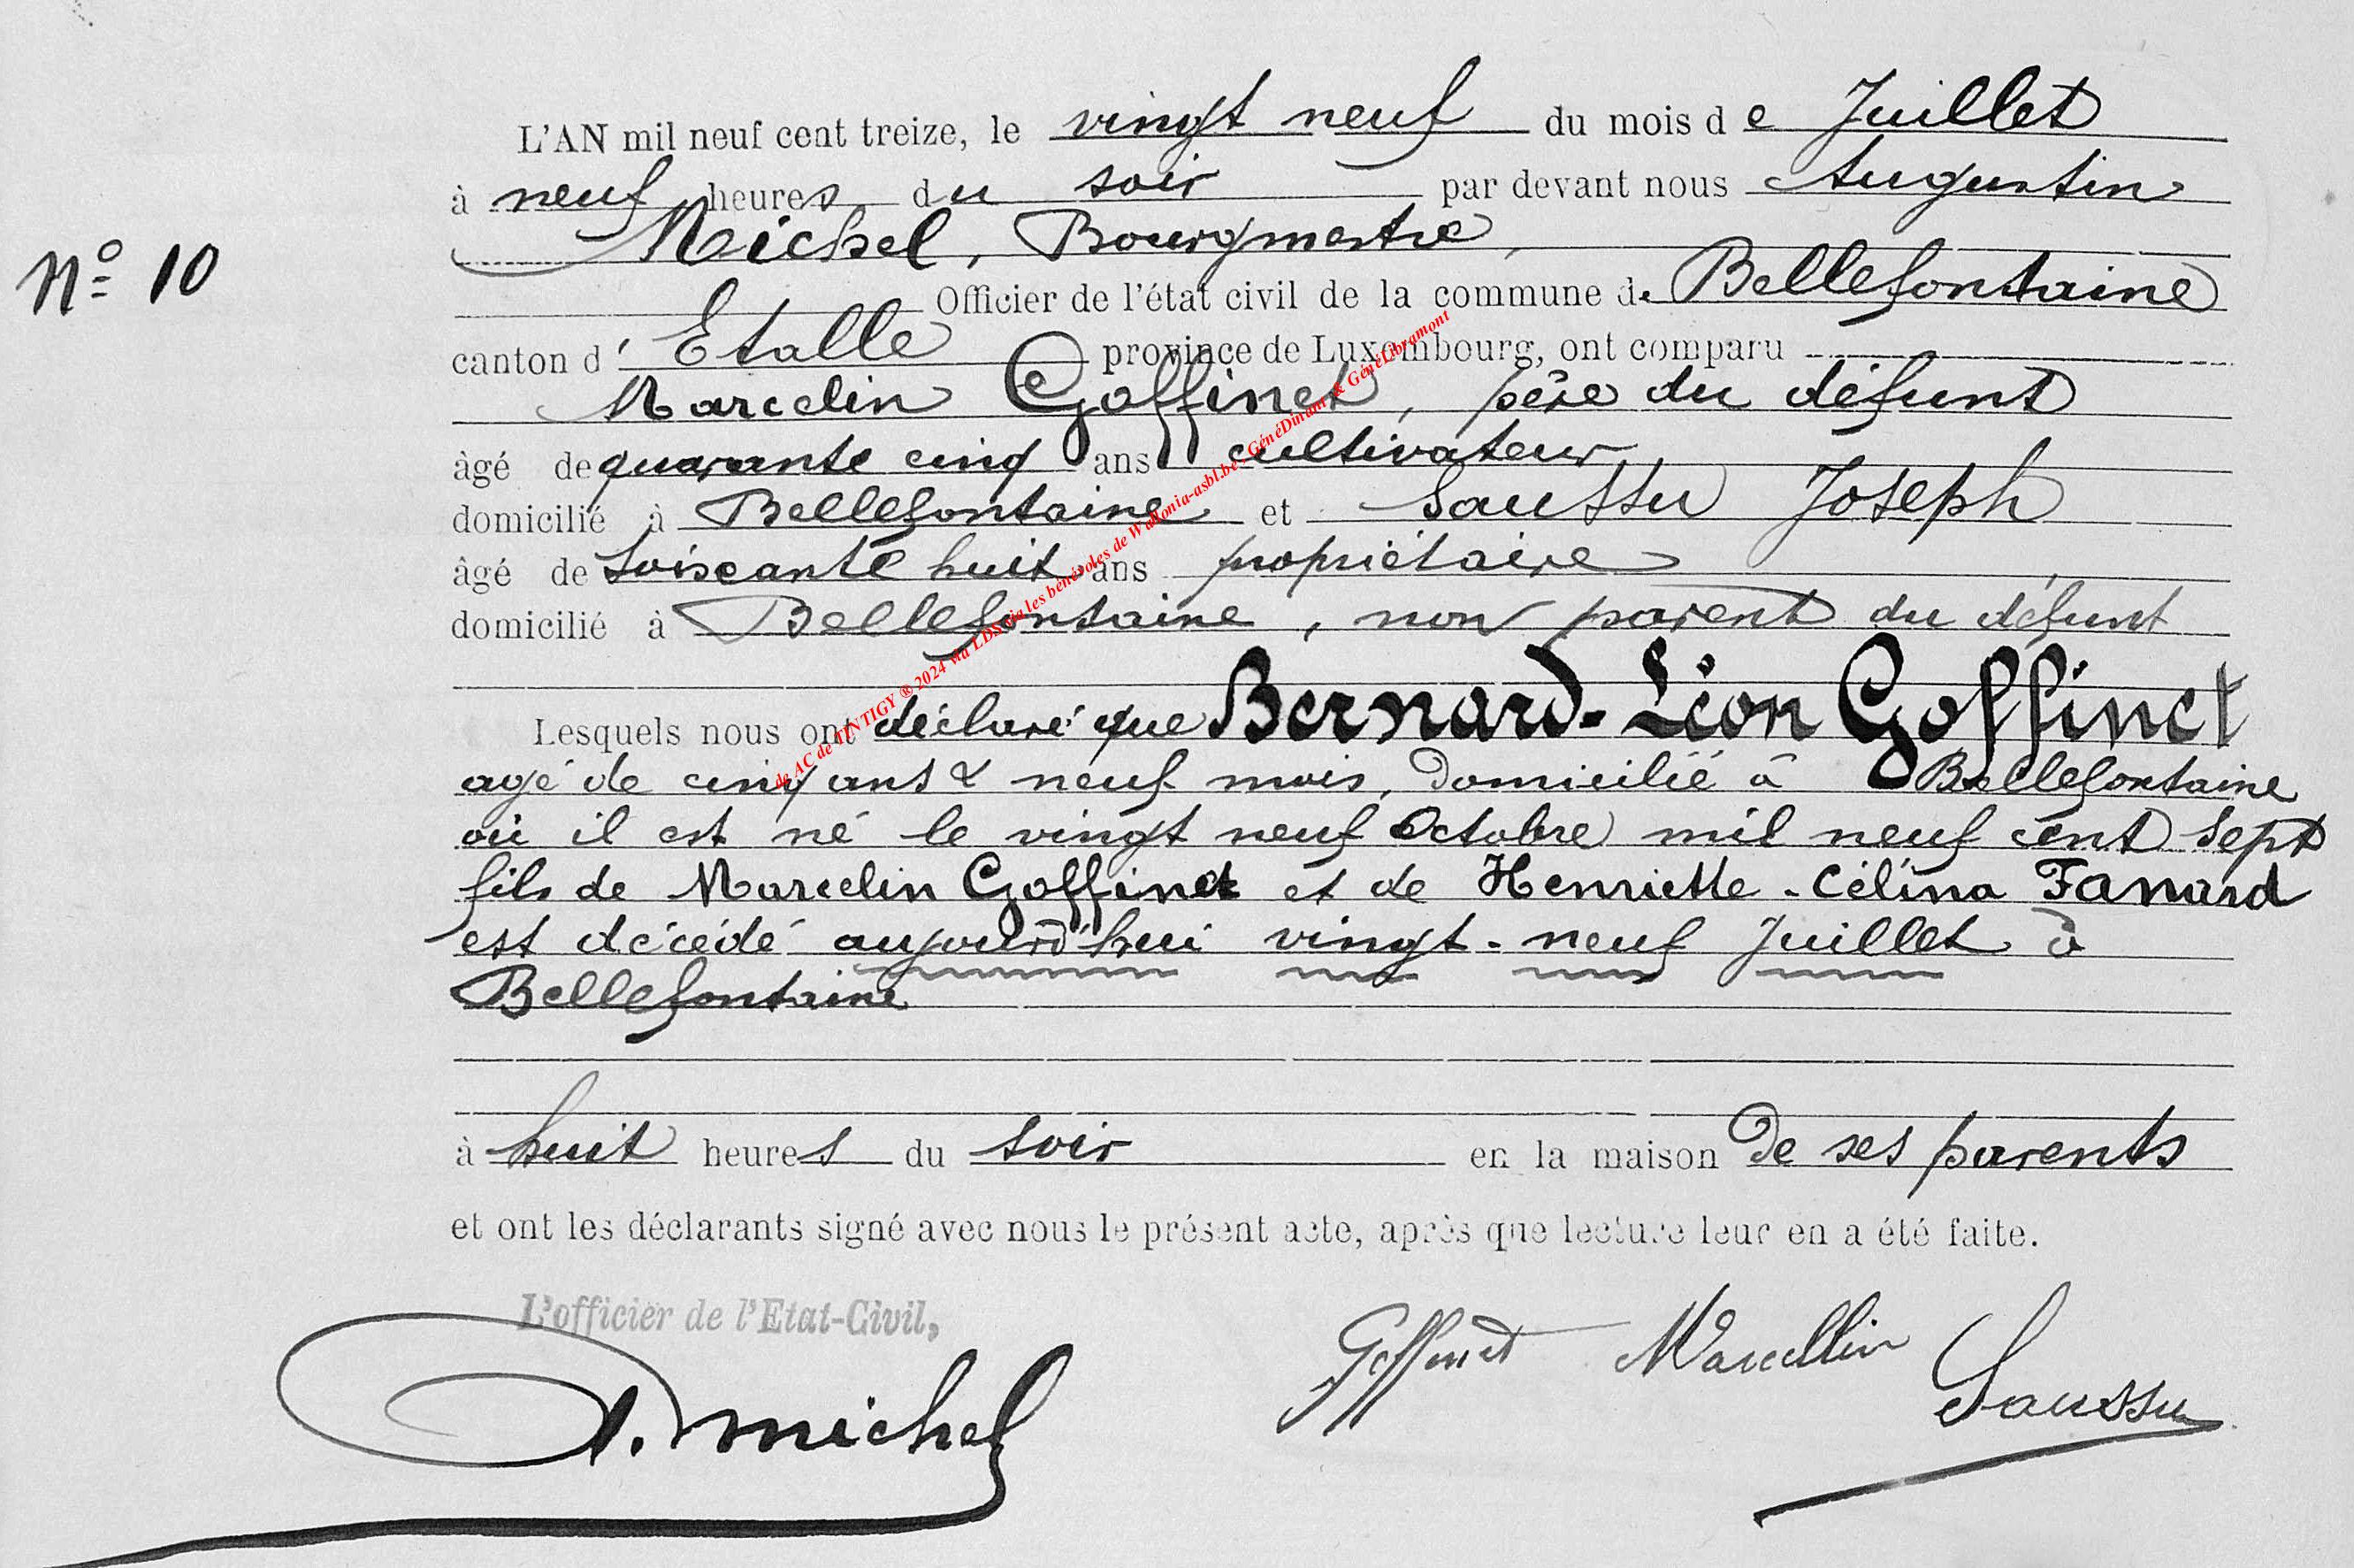 L'AN mil neuf cent treize, le vingt neuf du mois de Juillet
à neuf heures du soir par devant nous Augustin
Michel, Bourgmestre,
N° 10
Officier de l'état civil de la commune de Bellefontaine
canton d'Etalle province de Luxembourg, ont comparu
Marcelin Goffinet, père du défunt
âgé de quarante cinq ans cultivateur,
domicilié à Bellefontaine et Saussu Joseph
âgé de soixante huit ans propriétaire,
domicilié à Bellefontaine, non parent du défunt
Lesquels nous ont déclaré que Bernard-Léon Goffinet
agé de cinq ans & neuf mois, domicilié à Bellefontaine
où il est né le vingt neuf Octobre mil neuf cent sept
fils de Marcelin Goffinet et de Henriette-Célina Fanard
est décédé aujourd'hui vingt-neuf Juillet à
Bellefontaine
à huit heures du soir en la maison de ses parents
et ont les déclarants signé avec nous le présent acte, après que lecture leur en a été faite.
L'officier de l'Etat-Civil,
A. Michel
Goffinet Marcellin
Saussu
de AC de TINTIGY ® 2024 via LDS via les bénévoles de Wallonia-asbl.be - GénéDinant & GénéLibramont